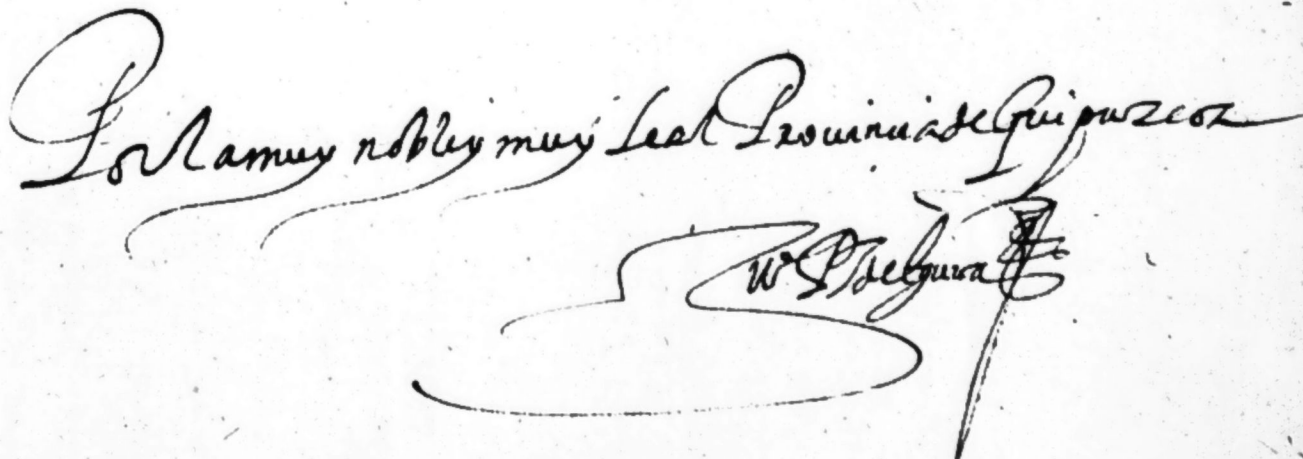 Por la muy noble y muy leal Prouinçia de Guipuzcoa
de